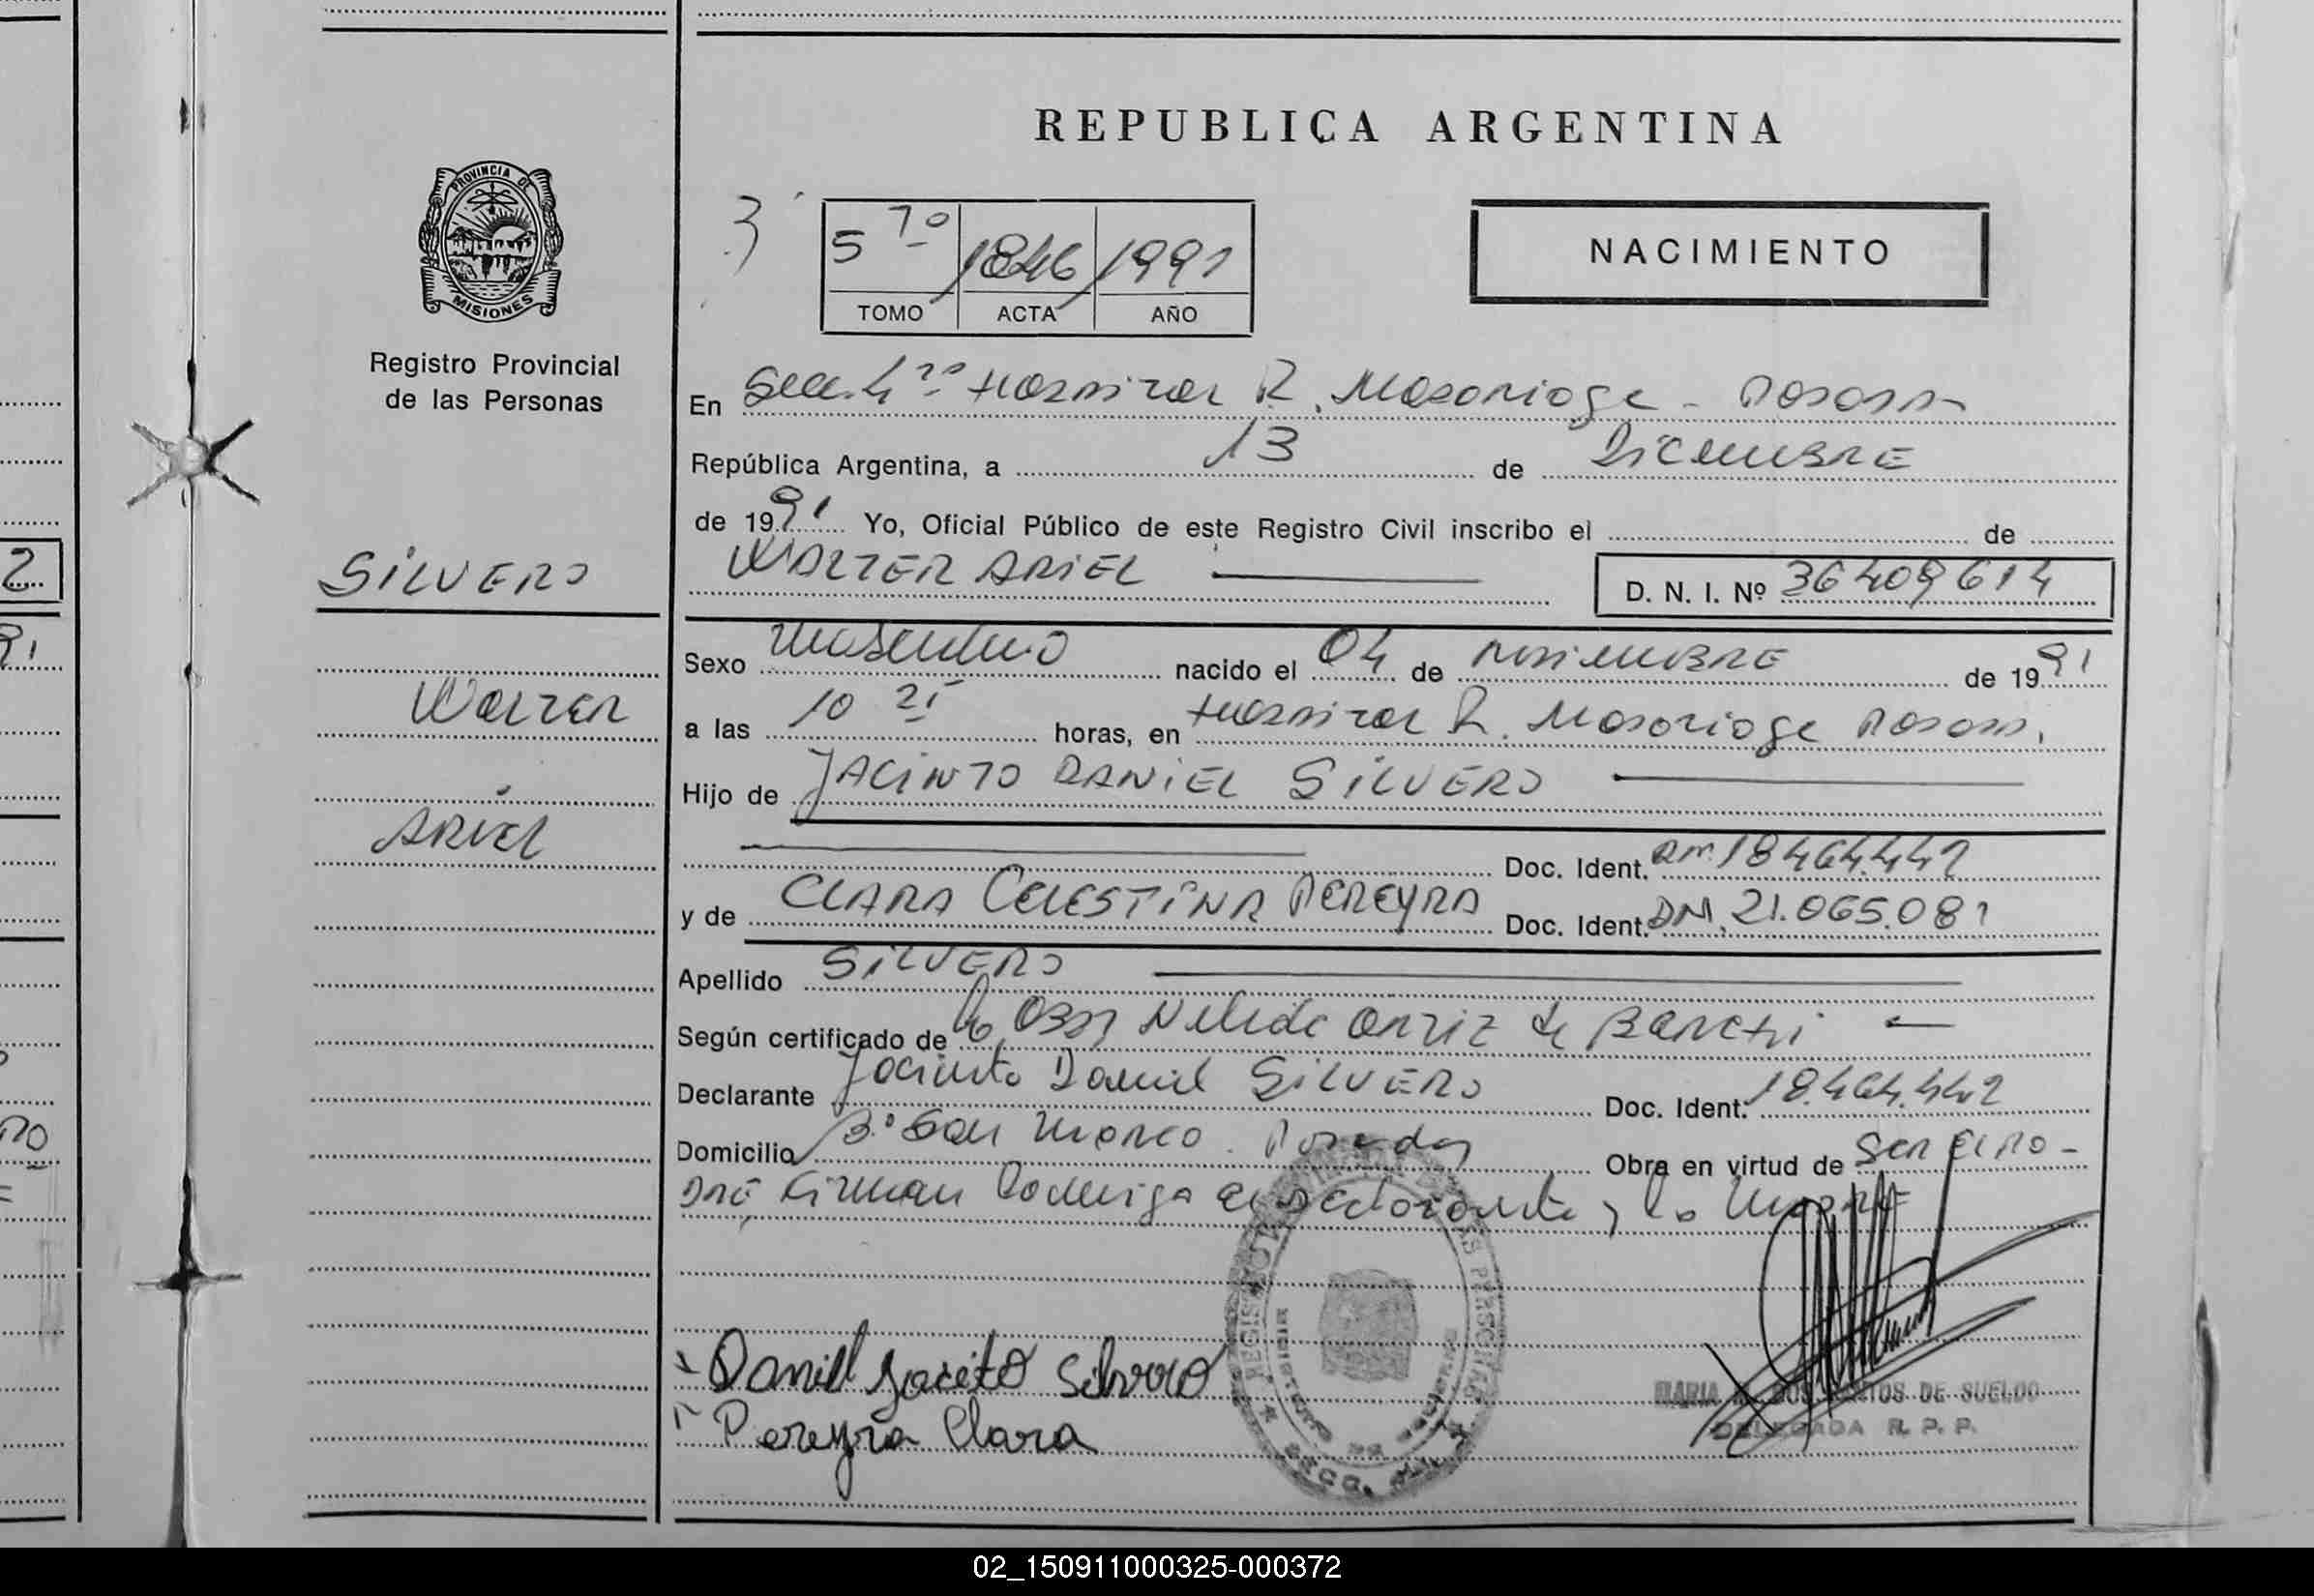 REPUBLICA ARGENTINA
PROVINCIA DE
MISIONES
Registro Provincial
de las Personas
3
5 7º 1846 1991
TOMO ACTA AÑO
NACIMIENTO
En Secc. 4ta Hospital R. Madariaga - Posadas
República Argentina, a 13 de Diciembre
de 1991 Yo, Oficial Público de este Registro Civil inscribo el de
SILVERO
WALTER ARIEL
D. N. I. Nº 36409614
Sexo Masculino nacido el 04 de Noviembre de 1991
Walter
a las 10 21 horas, en Hospital R. Madariaga Posadas.
Hijo de JACINTO DANIEL SILVERO
Ariel
Doc. Ident. DM. 18.464.442
y de CLARA CELESTINA PEREYRA Doc. Ident. DM. 21.065.081
Apellido SILVERO
Según certificado de la Obst Nelida Ortiz de
Declarante Jacinto Daniel SILVERO Doc. Ident. 18.464.442
Domicilio Bº San Marco. Posadas Obra en virtud de ser el PRO-
DRE, Firman Conmigo el Declarante y la Madre
Daniel Jacito Silvero
Pereyra Clara
DE SUELDO
DELEGADA R. P. P.
2
91
RO
02_150911000325-000372